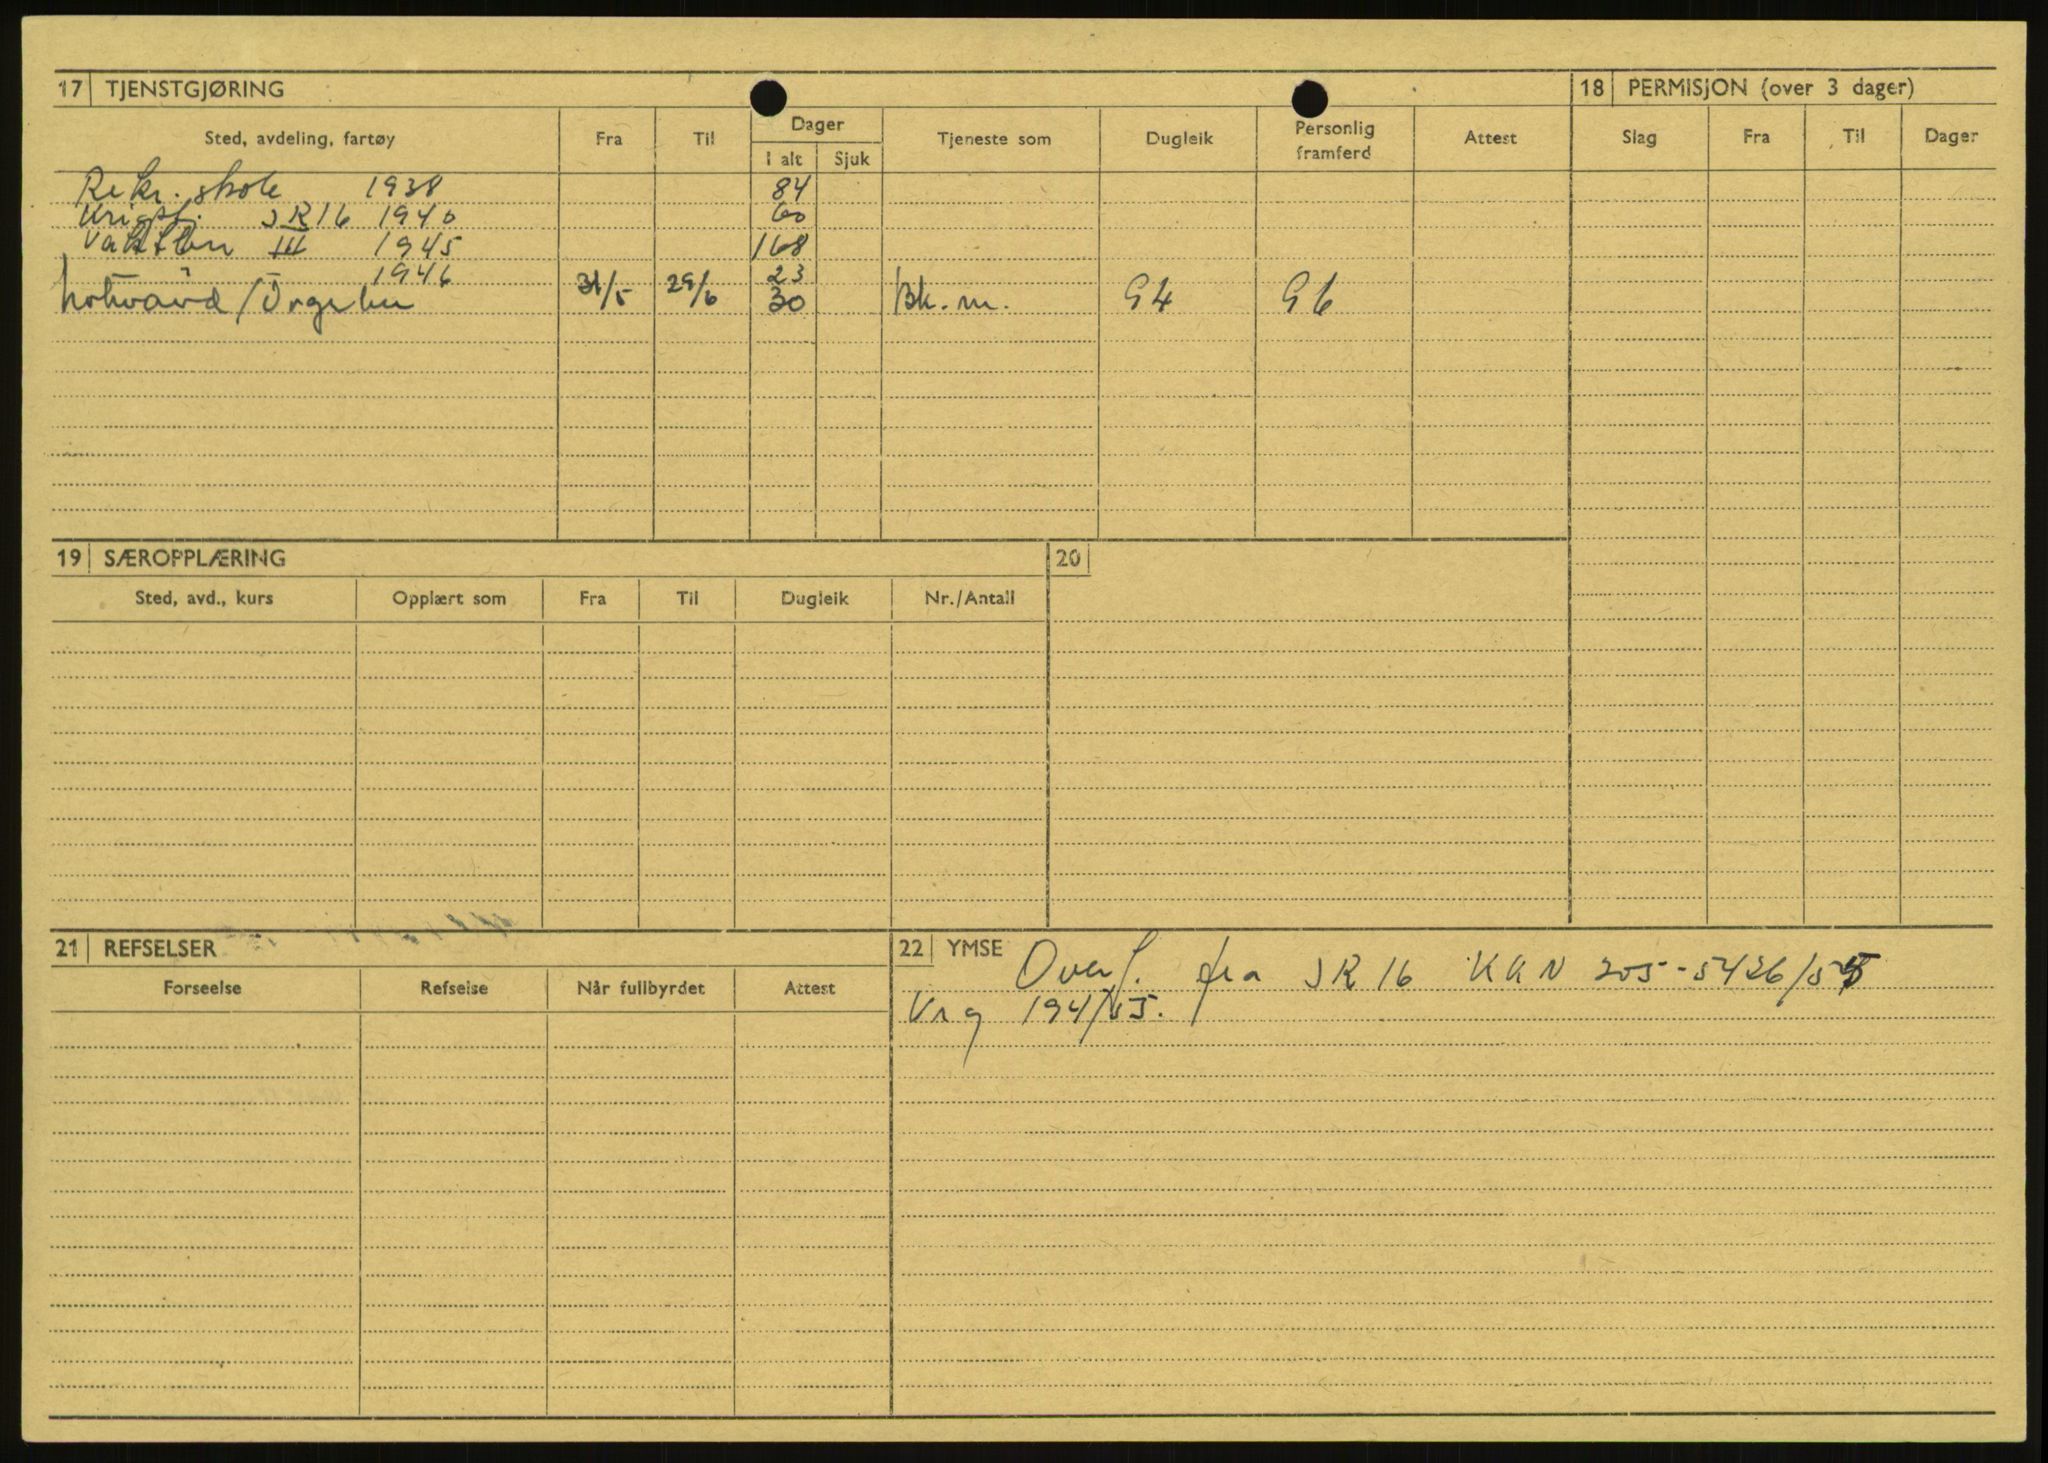 17 TJENSTGJØRING
18 PERMISJON (over 3 dager)
Sted, avdeling, fartøy Fra Til Dager Tjeneste som Dugleik Personlig framferd Attest Slag Fra Til Dager
I alt Sjuk
Rekr. skole 1938 84
Krigstj. JR16 1940 60
Vaktbn III 1945 168
1946 23
31/5 29/6 30 Bk.m. G4 G6
19 SÆROPPLÆRING
20
Sted, avd., kurs Opplært som Fra Til Dugleik Nr./Antall
21 REFSELSER
22 YMSE Overf. fra JR 16 KKN 205-5426/55
Forseelse Refselse Når fullbyrdet Attest
Vrg 194/55.